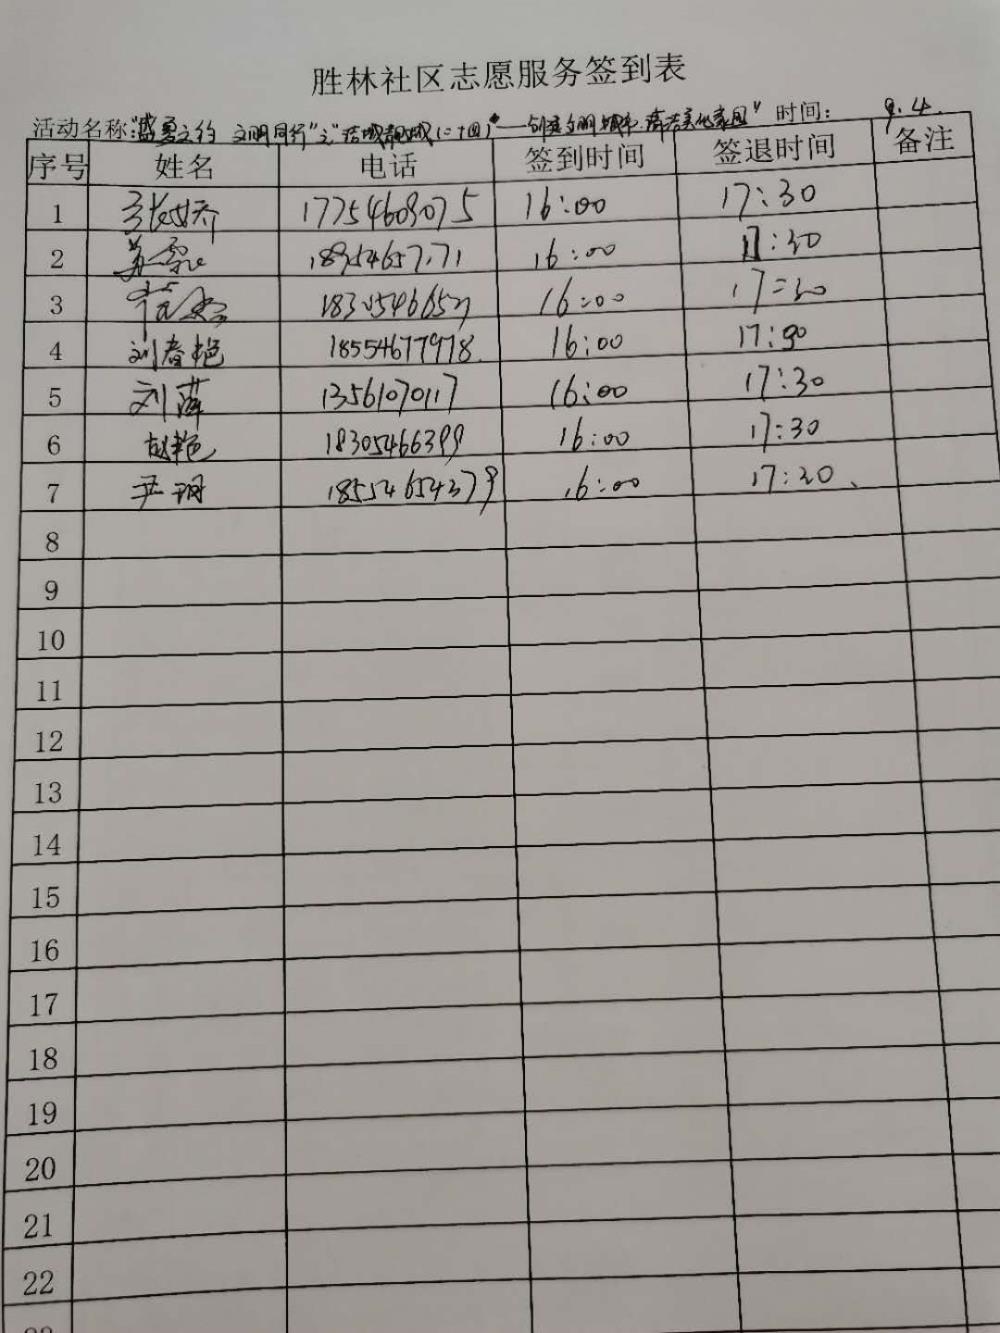 胜林社区志愿服务签到表
活动名称:"盛夏之约 文明同行"之"洁城靓城(二十回)"——创建文明城市 清洁美化家园" 时间: 9.4.
序号 姓名 电话 签到时间 签退时间 备注
1 17754609075 16:00 17:30
2 16:00 17:30
3 16:00 17:30
4 刘春艳 18554677978 16:00 17:30
5 刘萍 13561070117 16:00 17:30
6 赵艳 18305466399 16:00 17:30
7 尹玥 18554654379 16:00 17:30
8
9
10
11
12
13
14
15
16
17
18
19
20
21
22
23